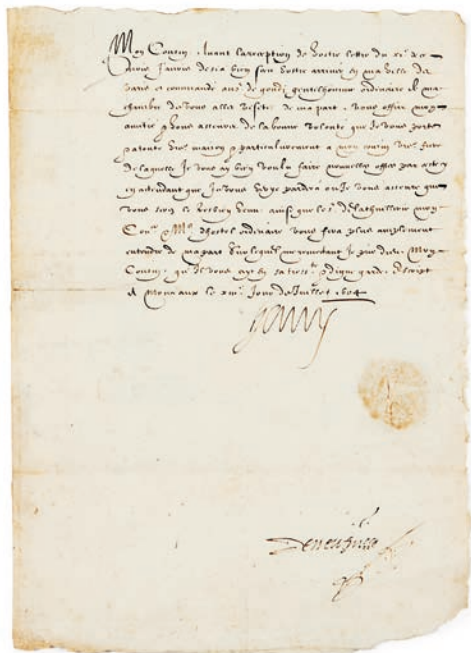 Mon Cousin, Avant la reception de vostre lettre du xi.e de
ce mois J'avois desia bien sceu vostre arrivée en ma ville de
et commandé au s.r de gondi gentilhomme ordinaire de ma
chambre de vous aller visiter de ma part, vous offrir mon
amitié & vous asseurer de la bonne volonté que Je vous porte
maison & particulierement a mon cousin vre. frere
de laquelle Je vous ay bien voulu faire nouvelles offres par ceste cy
en attendant que Je vous voye par deça ou Je vous asseure que
vous serez le tresbien venu ainsi que le s.r de mon
Con.er & M.e d'hostel ordinaire vous fera plus amplement
entendre de ma part Sur lequel me remettant Je prie dieu, Mon
Cousin, qu'il vous ayt en sa tres s.te & digne garde. Escript
A Monceaux le jour de Juillet 1604
Henry
Deneufville